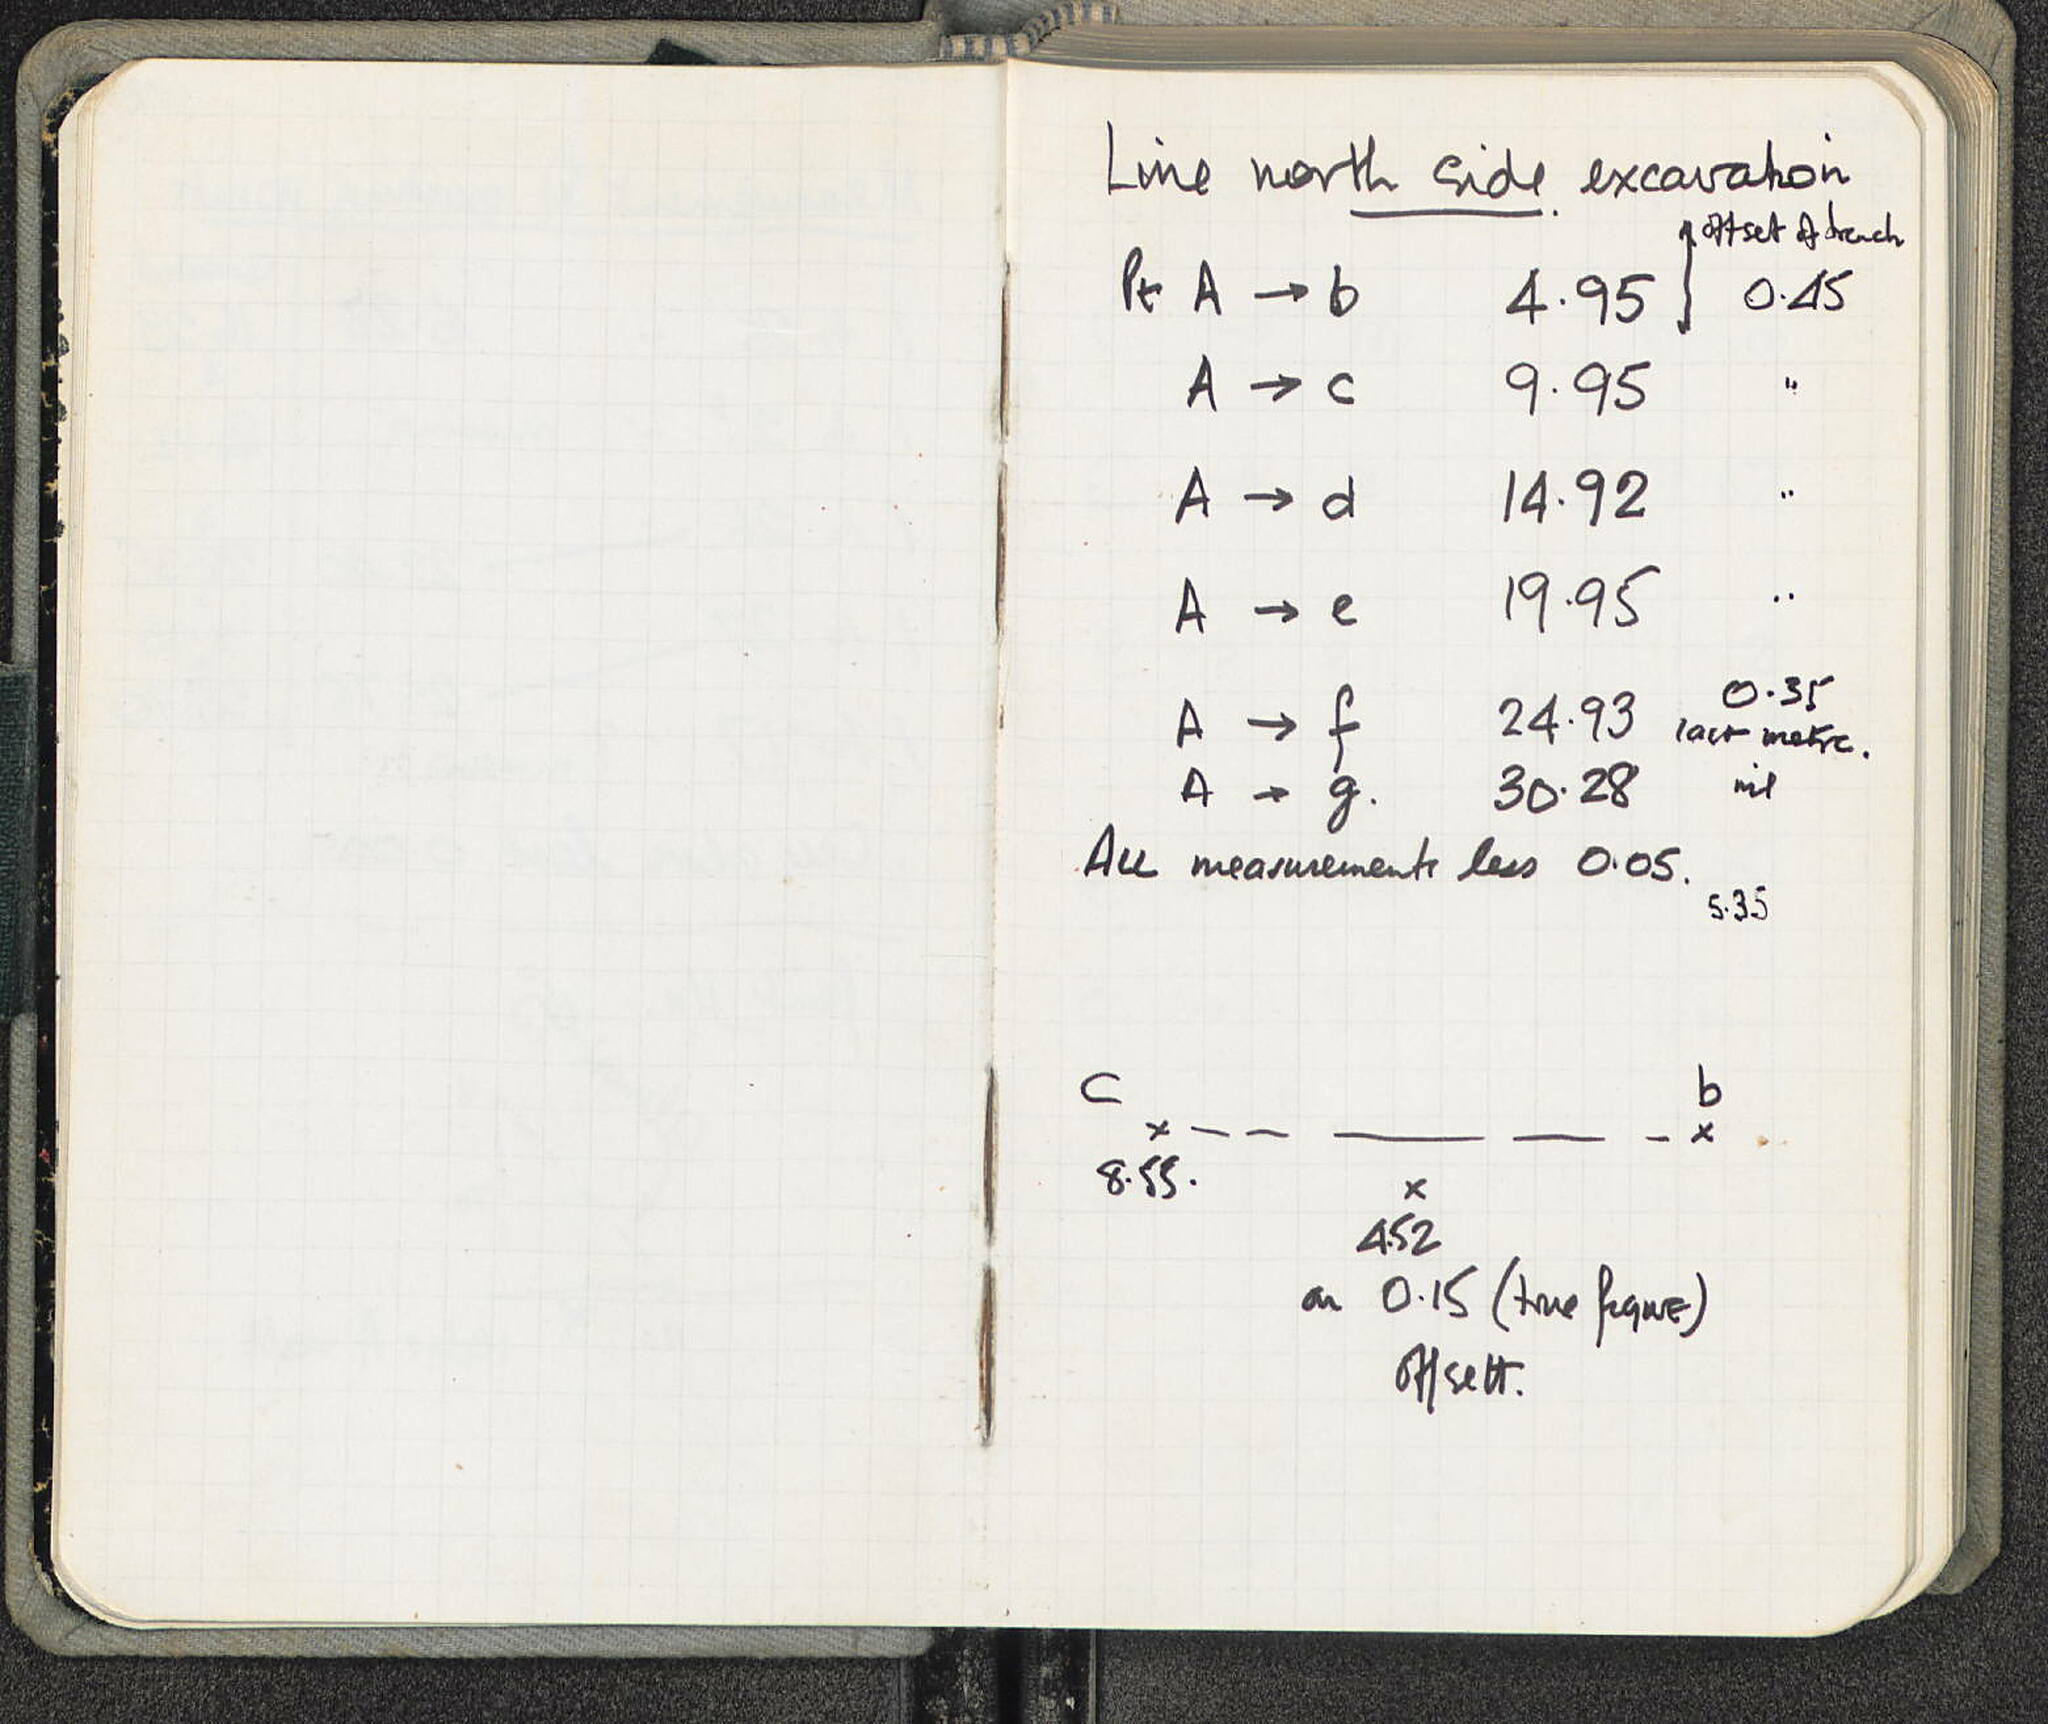 Line north side. excavation
offset of trench
Pt A → b 4.95 } 0.45
A → c 9.95 "
A → d 14.92 "
A → e 19.95 "
A → f 24.93 0.35
last metre.
A → g. 30.28 nil
All measurements less 0.05.
5.35
C b
x — — — — - x
8.55.
x
4.52
on 0.15 (true figure)
offsett.